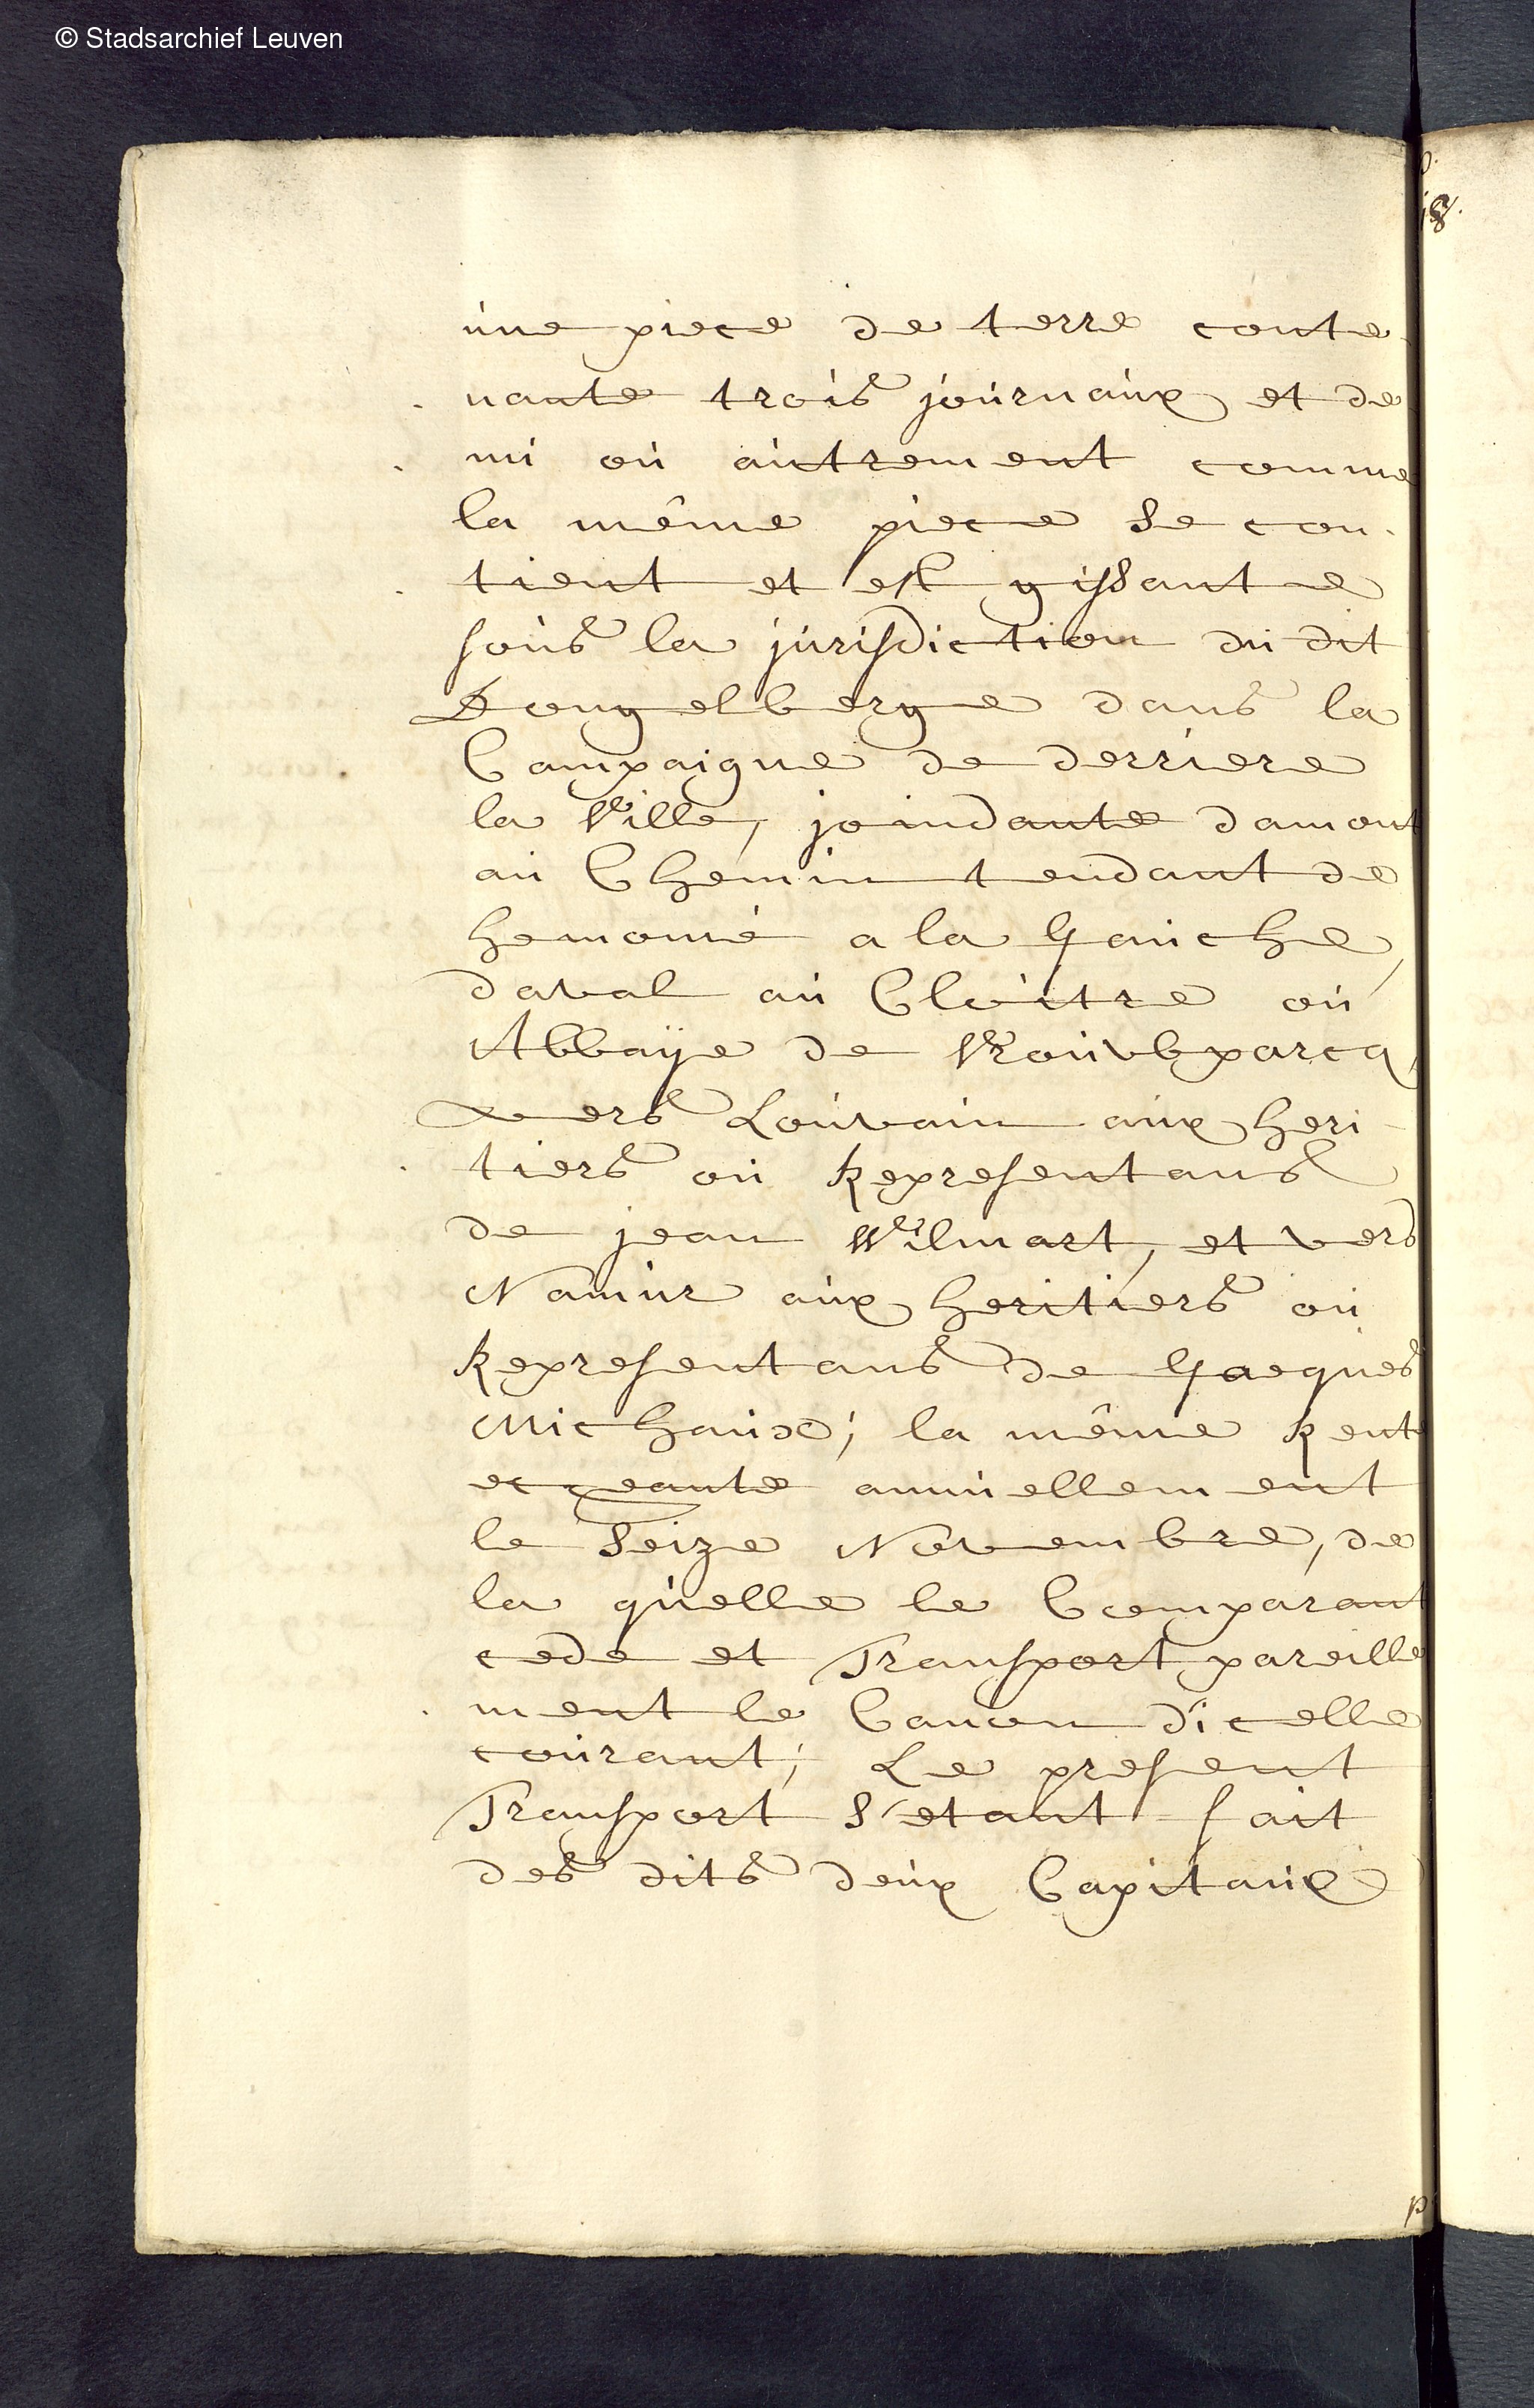 © Stadsarchief Leuven
18.
une piece de terre conte
nante trois journaux et de
mi ou autrement comme
la même piece se con
tient et est gissante
sous la jurisdiction du dit
Dongelberge dans la
Campaigne de derriere
la Ville, joindante damont
au Chemin tendant de
a la Gauche,
daval au Cloitre ou
Abbaÿe de Vrouvbparcq,
vers Louvain aux heri
tiers ou Representans
de jean Wilmart, et vers
Namur aux heritiers ou
Representans de Jacques
Michaux; la même Rente
echeante annuellement
le Seize Novembre, de
la quelle le Comparant
cede et Transport pareille
ment le Canon d'icelle
courant; Le present
Transport s'etant fait
des dits deux Capitaux